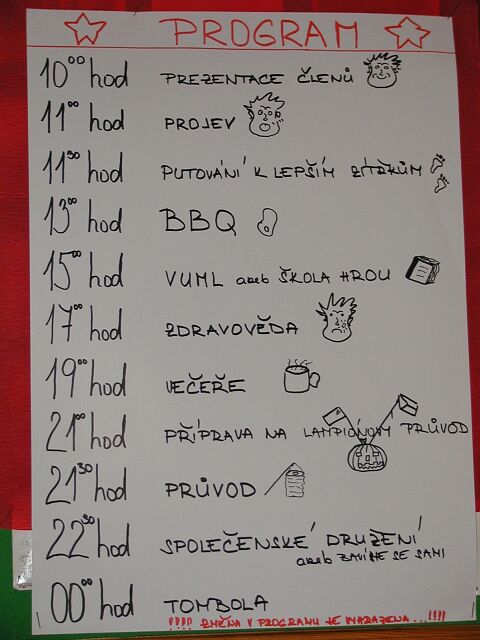 PROGRAM
10⁰⁰ hod PREZENTACE ČLENŮ
11⁰⁰ hod PROJEV
11³⁰ hod PUTOVÁNÍ K LEPŠÍM ZÍTŘKŮM
13⁰⁰ hod BBQ
15⁰⁰ hod VUML aneb ŠKOLA HROU
17⁰⁰ hod ZDRAVOVĚDA
19⁰⁰ hod VEČEŘE
21⁰⁰ hod PŘÍPRAVA NA LAMPIÓNOVÝ PRŮVOD
21³⁰ hod PRŮVOD
22³⁰ hod SPOLEČENSKÉ DRUŽENÍ
aneb BAVÍME SE SAMI
00⁰⁰ hod TOMBOLA
!!!! ZMĚNA V PROGRAMU JE VYHRAZENA...!!!!